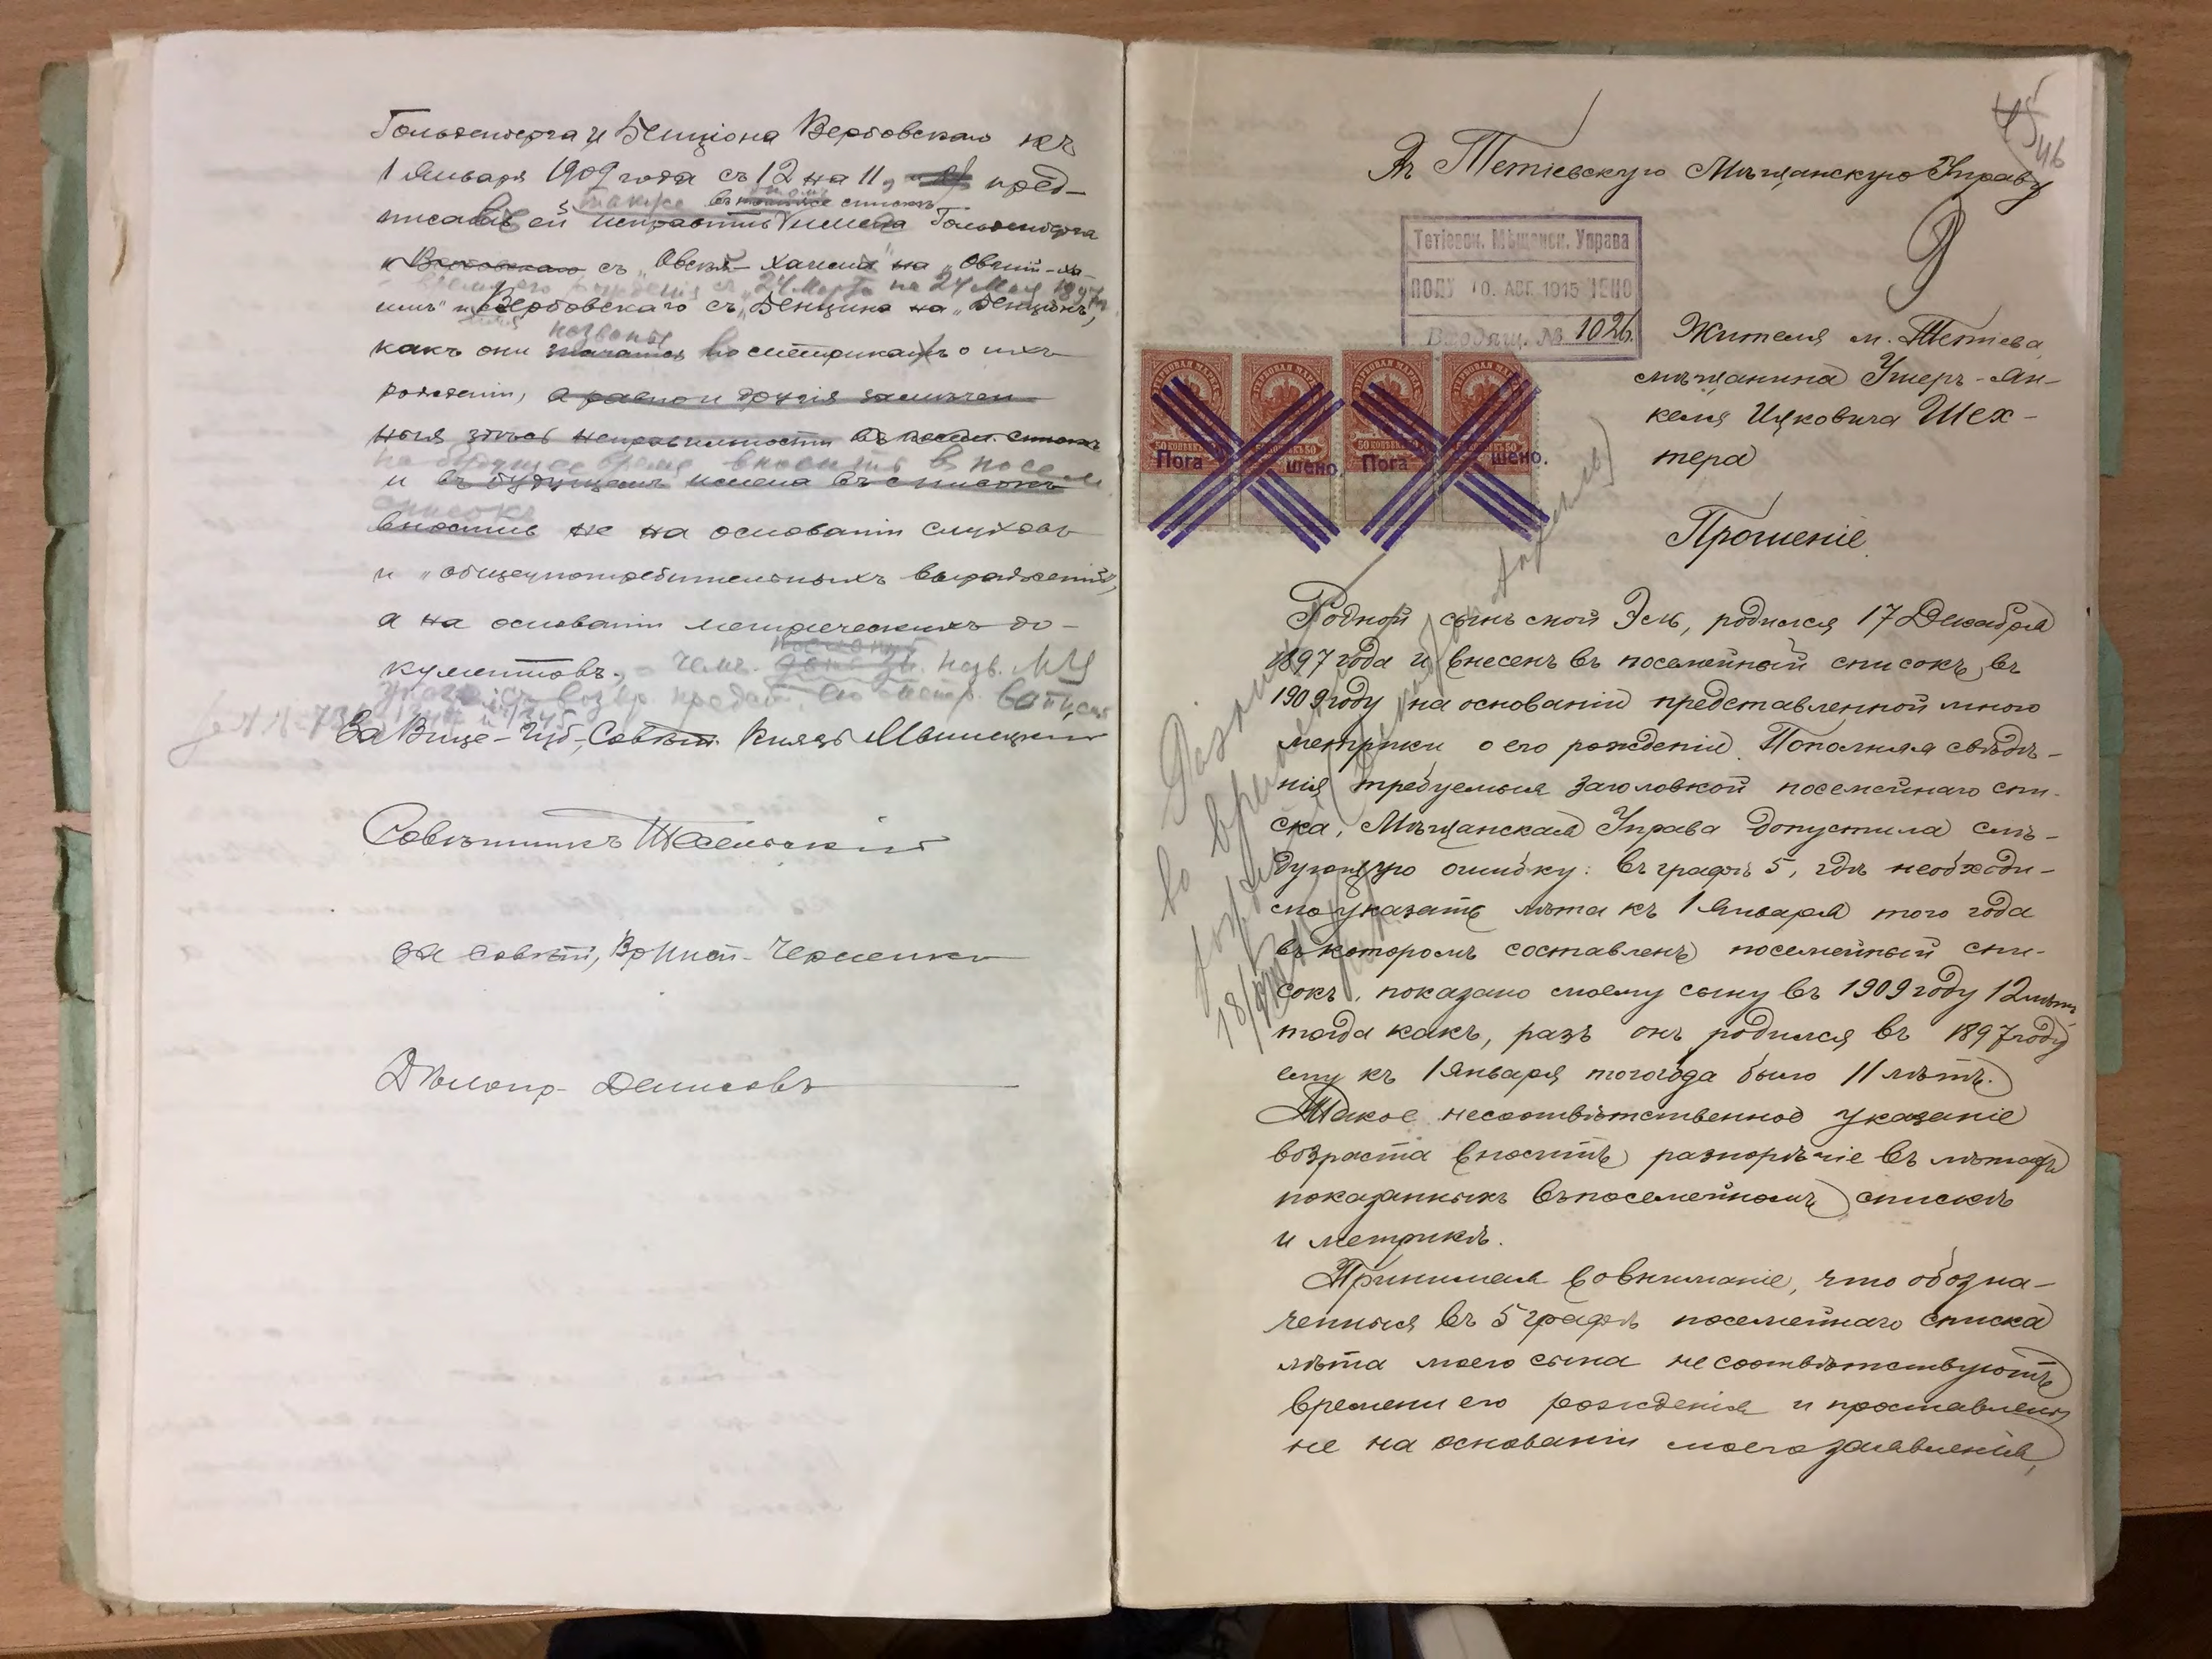 Гольденберга и Бенціона Вербовскаго къ
1 Января 1909 года съ 12 на 11, пред-
также въ списк
писавъ ей исправить имена Гольденберга
и Вербовскаго съ „Овсій-Хаимъ" на „Овшій-Ха-
рожденія съ 24 Марта на 24 Мая 1897
имъ" и Вербовскаго съ „Бенцина на „Бенціонъ",
названы
какъ они значатся по метрикамъ о ихъ
рожденіи, а равно и другія замѣчен-
ныя здѣсь неправильности въ посем. списк
на будущее время вносить в посем
и въ будущемъ имена въ списокъ
списокъ
вносить не на основаніи слуховъ
и „общеупотребительныхъ выраженій",
а на основаніи метрическихъ до-
кументовъ.
За Вице-Губ., Совѣтн. Князь
Совѣтникъ
за Совѣтн,
Дѣлопр. Денисовъ
45
46
Въ Тетіевскую Мѣщанскую Управу
Тетіевск. Мѣщанск. Управа
ПОЛУ 10. АВГ. 1915 ЧЕНО
Входящ. № 1026.
Жителя м. Тетіева
мѣщанина Ушеръ-Ян-
келя Ицковича Шех-
тера
ГЕРБОВАЯ МАРКА ГЕРБОВАЯ МАРКА ГЕРБОВАЯ МАРКА ГЕРБОВАЯ МАРКА
50 КОПѢЕКЪ 50 50 КОПѢЕКЪ 50 50 КОПѢЕКЪ 50 50 КОПѢЕКЪ 50
Пога шено. Пога шено.
Прошеніе.
Родной сынъ мой Эль, родился 17 Декабря
1897 года и внесенъ въ посемейный списокъ въ
1909 году на основаніи представленной мною
метрики о его рожденіи. Пополняя свѣдѣ-
нія требуемыя заголовкой посемейнаго спи-
ска, Мѣщанская Управа допустила слѣ-
дующую ошибку: въ графѣ 5, гдѣ необходи-
мо указать лѣта къ 1 Января того года
въ которомъ составленъ посемейный спи-
сокъ, показано моему сыну въ 1909 году 12 лѣтъ
тогда какъ, разъ онъ родился въ 1897 году
ему къ 1 Января того года было 11 лѣтъ.
Такое несоотвѣтственное указаніе
возраста вноситъ разнорѣчіе въ лѣтахъ
показанныхъ въ посемейномъ спискѣ
и метрикѣ.
Принимая во вниманіе, что обозна-
ченныя въ 5 графѣ посемейнаго списка
лѣта моего сына не соотвѣтствуютъ
времени его рожденія и проставлены
не на основаніи моего заявленія,
Разница
во времени